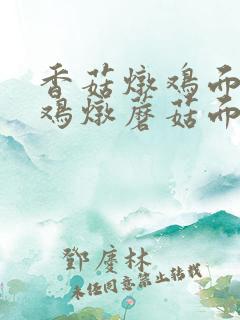 香菇燉鸡而
鸡燉蘑菇而
鄧慶林
未经同意禁止转载